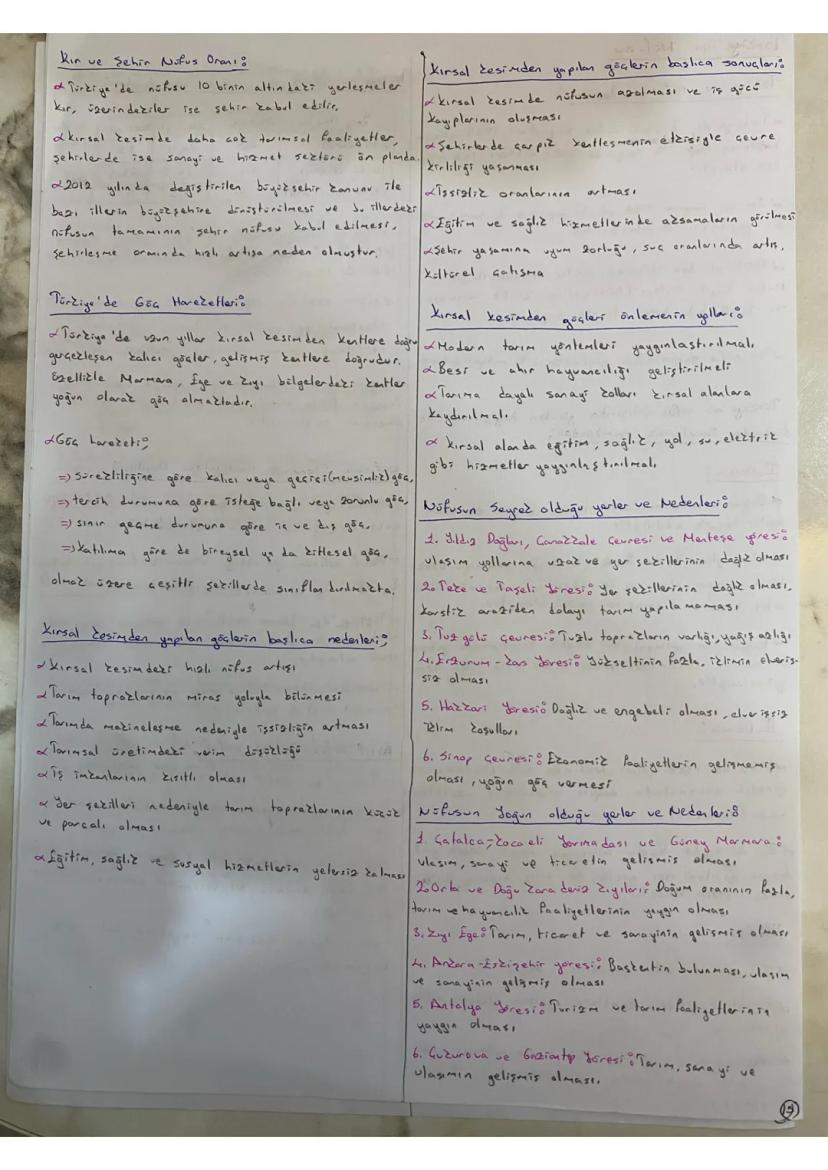 Kır ve Şehir Nüfus Oranı:
Türkiye'de nüfusu 10 binin altındaki yerleşmeler
kır, üzerindekiler ise şehir kabul edilir.
Kırsal kesimde daha çok tarımsal faaliyetler,
şehirlerde ise sanayi ve hizmet sektörü ön planda.
2012 yılında değiştirilen büyükşehir kanunu ile
bazı illerin büyükşehire dönüştürülmesi ve bu illerdeki
nüfusun tamamının şehir nüfusu kabul edilmesi,
şehirleşme oranında hızlı artışa neden olmuştur.
Türkiye'de Göç Hareketleri:
Türkiye'de uzun yıllar kırsal kesimden kentlere doğru
gerçekleşen kalıcı göçler, gelişmiş kentlere doğrudur.
Özellikle Marmara, Ege ve kıyı bölgelerdeki kentler
yoğun olarak göç almaktadır.
Göç hareketi;
=> sürekliliğine göre kalıcı veya geçici (mevsimlik) göç,
=> tercih durumuna göre isteğe bağlı veya zorunlu göç,
=> sınır geçme durumuna göre iç ve dış göç,
=> katılıma göre de bireysel ya da kitlesel göç,
olmak üzere çeşitli şekillerde sınıflandırılmakta.
Kırsal kesimden yapılan göçlerin başlıca nedenleri;
Kırsal kesimdeki hızlı nüfus artışı
Tarım topraklarının miras yoluyla bölünmesi
Tarımda makineleşme nedeniyle işsizliğin artması
Tarımsal üretimdeki verim düşüklüğü
İş imkanlarının kısıtlı olması
Yer şekilleri nedeniyle tarım topraklarının küçük
ve parçalı olması
Eğitim, sağlık ve sosyal hizmetlerin yetersiz kalması
Kırsal kesimden yapılan göçlerin başlıca sonuçları:
Kırsal kesimde nüfusun azalması ve iş gücü
kayıplarının oluşması
Şehirlerde çarpık kentleşmenin etkisiyle çevre
kirliliği yaşanması
İşsizlik oranlarının artması
Eğitim ve sağlık hizmetlerinde aksamaların görülmesi
Şehir yaşamına uyum zorluğu, suç oranlarında artış,
kültürel çatışma
Kırsal kesimden göçleri önlemenin yolları:
Modern tarım yöntemleri yaygınlaştırılmalı
Besi ve ahır hayvancılığı geliştirilmeli
Tarıma dayalı sanayi kolları kırsal alanlara
kaydırılmalı
Kırsal alanda eğitim, sağlık, yol, su, elektrik
gibi hizmetler yaygınlaştırılmalı
Nüfusun Seyrek olduğu yerler ve Nedenleri:
1. Yıldız Dağları, Çanakkale Çevresi ve Menteşe yöresi:
ulaşım yollarına uzak ve yer şekillerinin dağlık olması
2. Teke ve Taşeli Yöresi: Yer şekillerinin dağlık olması,
karstik araziden dolayı tarım yapılamaması
3. Tuz gölü çevresi: Tuzlu toprakların varlığı, yağış azlığı
4. Erzurum-Kars Yöresi: Yükseltinin fazla, iklimin elveriş-
siz olması
5. Hakkari Yöresi: Dağlık ve engebeli olması, elverişsiz
iklim koşulları
6. Sinop Çevresi: Ekonomik faaliyetlerin gelişmemiş
olması, yoğun göç vermesi
Nüfusun Yoğun olduğu yerler ve Nedenleri:
1. Çatalca-Kocaeli Yarımadası ve Güney Marmara:
ulaşım, sanayi ve ticaretin gelişmiş olması
2. Orta ve Doğu Karadeniz Kıyıları: Doğum oranının fazla,
tarım ve hayvancılık faaliyetlerinin yaygın olması
3. Kıyı Ege: Tarım, ticaret ve sanayinin gelişmiş olması
4. Ankara-Eskişehir yöresi: Başkentin bulunması, ulaşım
ve sanayinin gelişmiş olması
5. Antalya Yöresi: Turizm ve tarım faaliyetlerinin
yaygın olması
6. Çukurova ve Gaziantep Yöresi: Tarım, sanayi ve
ulaşımın gelişmiş olması.